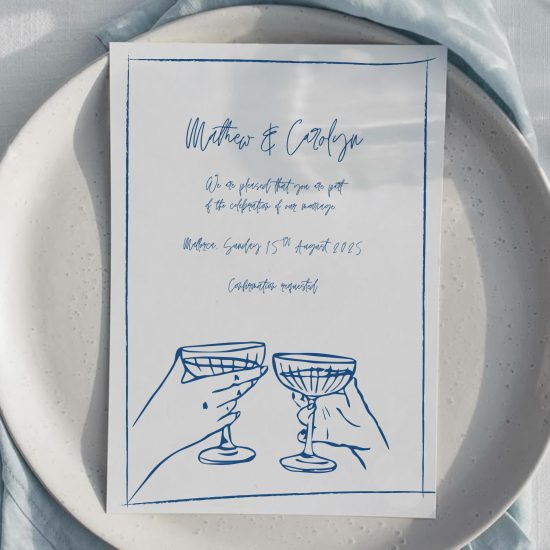 Mathew & Carolyn
We are pleased that you are part
of the celebration of our marriage
Mallorca, Sunday 15TH August 2025
Confirmation requested